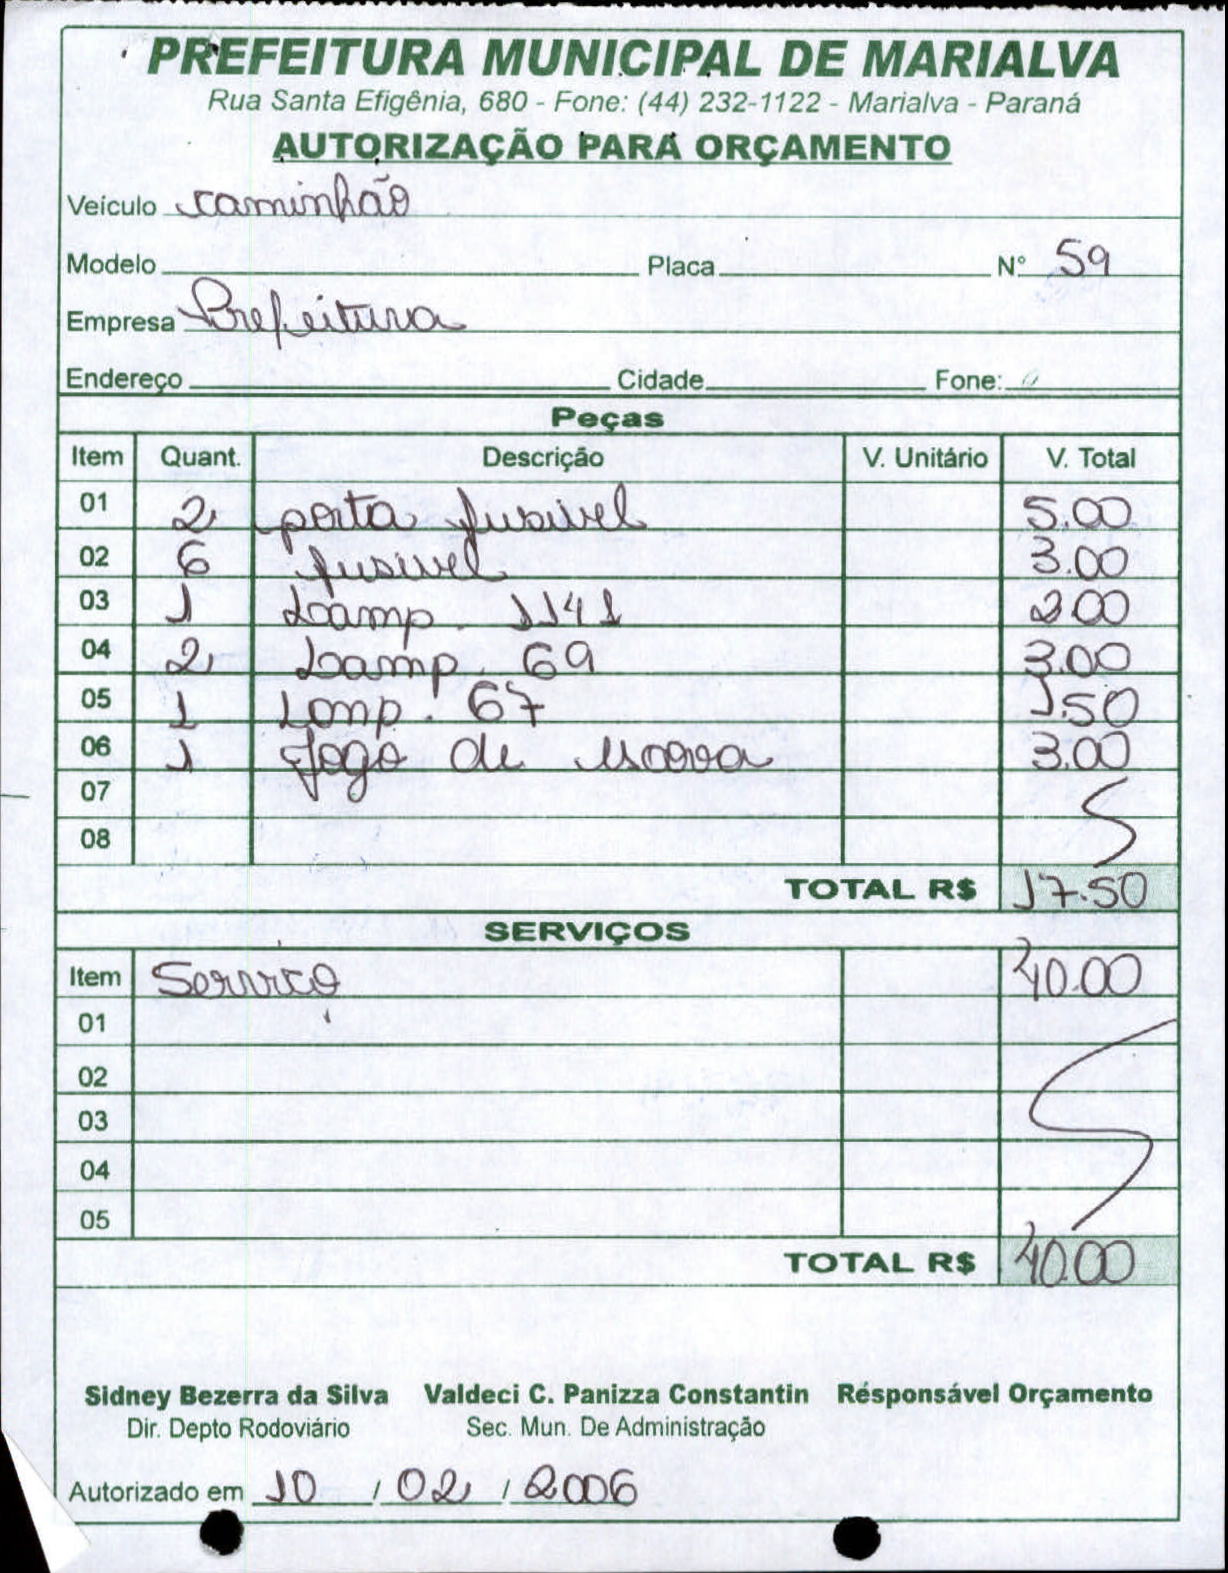 PREFEITURA MUNICIPAL DE MARIALVA
Rua Santa Efigênia, 680 - Fone: (44) 232-1122 - Marialva - Paraná
AUTORIZAÇÃO PARA ORÇAMENTO
Veículo caminhão
Modelo Placa Nº 59
Empresa Prefeitura
Endereço Cidade Fone:
Peças
Item Quant. Descrição V. Unitário V. Total
01 2 porta fusivel 5.00
02 6 fusivel 3.00
03 1 Lamp. 1141 2.00
04 2 Lamp. 69 3.00
05 1 Lamp. 67 1.50
06 1 Jogo de escova 3.00
07
08
TOTAL R$ 17.50
SERVIÇOS
Item Serviço 40.00
01
02
03
04
05
TOTAL R$ 40.00
Sidney Bezerra da Silva Valdeci C. Panizza Constantin Résponsável Orçamento
Dir. Depto Rodoviário Sec. Mun. De Administração
Autorizado em 10 / 02 / 2006